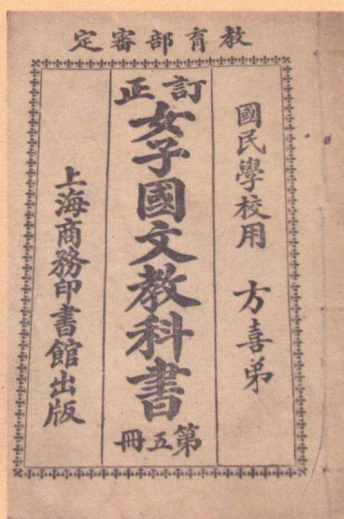 教育部審定
國民學校用 方喜弟
訂正
女子國文教科書
第五冊
上海商務印書館出版